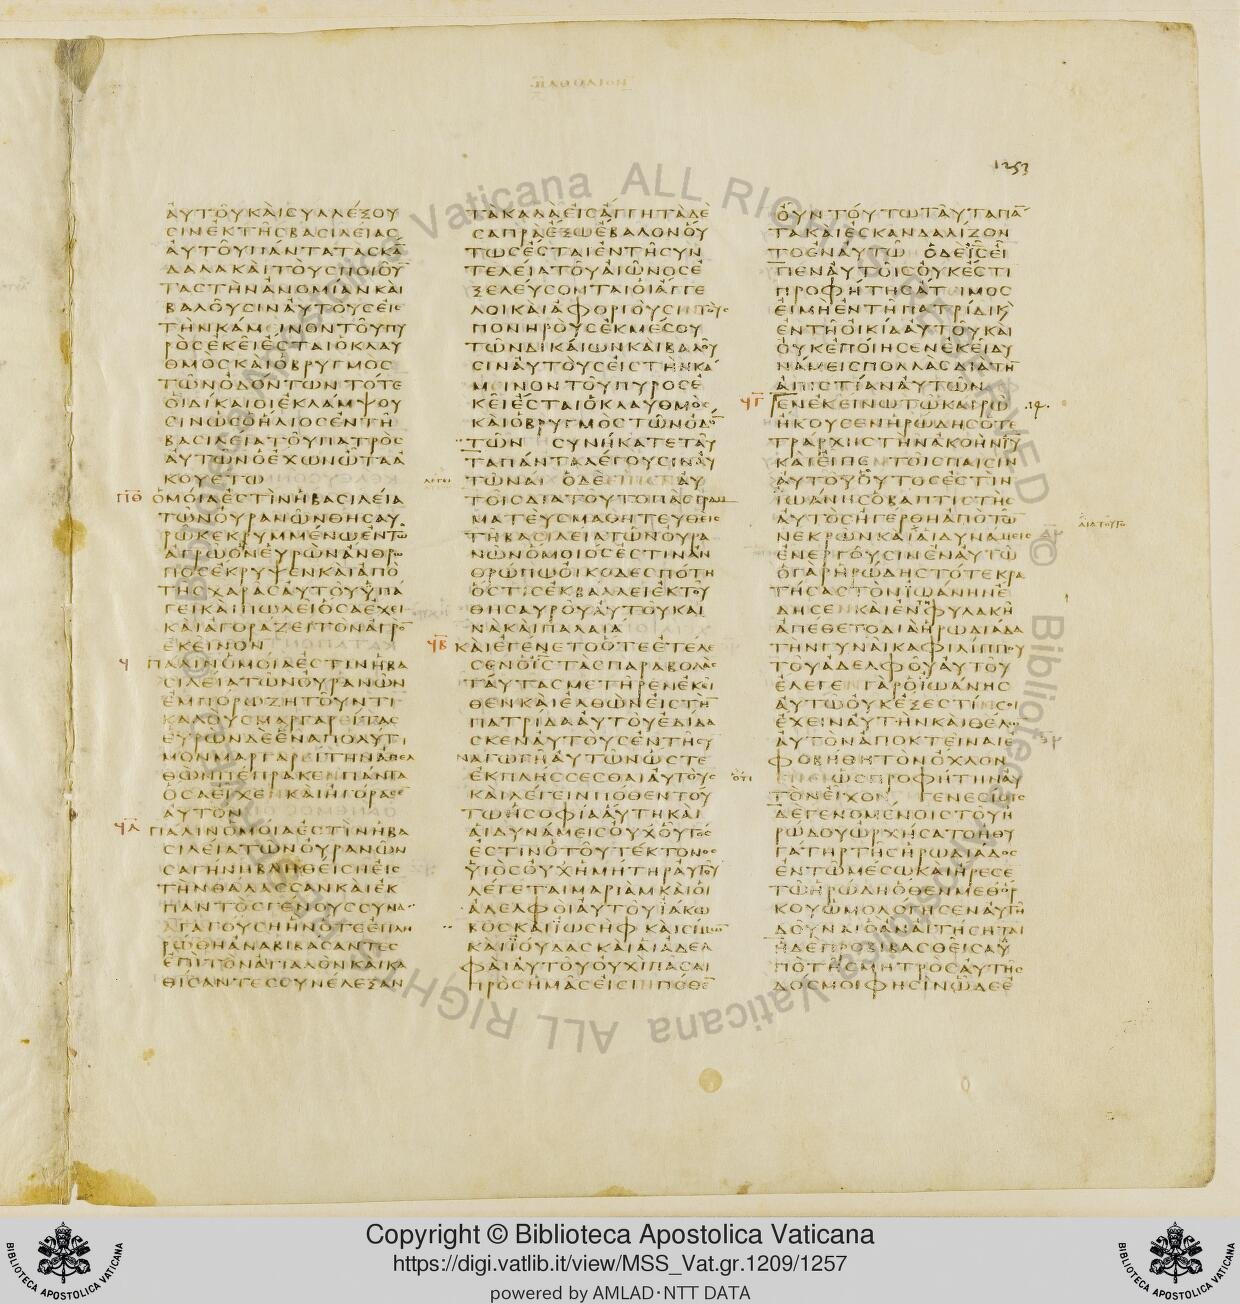 1253
ΑΥΤΟΥΚΑΙϹΥΛΛΕΞΟΥ
ϹΙΝΕΚΤΗϹΒΑϹΙΛΕΙΑϹ
ΑΥΤΟΥΠΑΝΤΑΤΑϹΚΑ̅
ΔΑΛΑΚΑΙΤΟΥϹΠΟΙΟΥ̅
ΤΑϹΤΗΝΑΝΟΜΙΑΝΚΑΙ
ΒΑΛΟΥϹΙΝΑΥΤΟΥϹΕΙϹ
ΤΗΝΚΑΜΕΙΝΟΝΤΟΥΠΥ
ΡΟϹΕΚΕΙΕϹΤΑΙΟΚΛΑΥ
ΘΜΟϹΚΑΙΟΒΡΥΓΜΟϹ
ΤΩΝΟΔΟΝΤΩΝ ΤΟΤΕ
ΟΙΔΙΚΑΙΟΙΕΚΛΑΜΨΟΥ
ϹΙΝΩϹΟΗΛΙΟϹΕΝΤΗ
ΒΑϹΙΛΕΙΑΤΟΥΠΑΤΡΟϹ
ΑΥΤΩΝΟΕΧΩΝΩΤΑΑ
ΚΟΥΕΤΩ
Π̅Θ̅ ΟΜΟΙΑΕϹΤΙΝΗΒΑϹΙΛΕΙΑ
ΤΩΝΟΥΡΑΝΩΝΘΗϹΑΥ
ΡΩΚΕΚΡΥΜΜΕΝΩΕΝΤΩ
ΑΓΡΩΟΝΕΥΡΩΝΑΝΘΡΩ
ΠΟϹΕΚΡΥΨΕΝΚΑΙΑΠΟ
ΤΗϹΧΑΡΑϹΑΥΤΟΥΥΠΑ
ΓΕΙΚΑΙΠΩΛΕΙΟϹΑΕΧΕΙ
ΚΑΙΑΓΟΡΑΖΕΙΤΟΝΑΓΡΟ̅
ΕΚΕΙΝΟΝ
Ϥ ΠΑΛΙΝΟΜΟΙΑΕϹΤΙΝΗΒΑ
ϹΙΛΕΙΑΤΩΝΟΥΡΑΝΩΝ
ΕΜΠΟΡΩΖΗΤΟΥΝΤΙ
ΚΑΛΟΥϹΜΑΡΓΑΡΕΙΤΑϹ
ΕΥΡΩΝΔΕΕΝΑΠΟΛΥΤΙ
ΜΟΝΜΑΡΓΑΡΕΙΤΗΝΑΠΕΛ
ΘΩΝΠΕΠΡΑΚΕΝΠΑΝΤΑ
ΟϹΑΕΙΧΕΝΚΑΙΗΓΟΡΑϹΕ
ΑΥΤΟΝ
ϤΑ̅ ΠΑΛΙΝΟΜΟΙΑΕϹΤΙΝΗΒΑ
ϹΙΛΕΙΑΤΩΝΟΥΡΑΝΩΝ
ϹΑΓΗΝΗΒΛΗΘΕΙϹΗΕΙϹ
ΤΗΝΘΑΛΑϹϹΑΝΚΑΙΕΚ
ΠΑΝΤΟϹΓΕΝΟΥϹϹΥΝΑ
ΓΑΓΟΥϹΗΗΝΟΤΕΕΠΛΗ
ΡΩΘΗΑΝΑΒΙΒΑϹΑΝΤΕϹ
ΕΠΙΤΟΝΑΙΓΙΑΛΟΝΚΑΙΚΑ
ΘΙϹΑΝΤΕϹϹΥΝΕΛΕΞΑΝ
ΤΑΚΑΛΑΕΙϹΑΓΓΗΤΑΔΕ
ϹΑΠΡΑΕΞΩΕΒΑΛΟΝΟΥ
ΤΩϹΕϹΤΑΙΕΝΤΗϹΥΝ
ΤΕΛΕΙΑΤΟΥΑΙΩΝΟϹΕ
ΞΕΛΕΥϹΟΝΤΑΙΟΙΑΓΓΕ
ΛΟΙΚΑΙΑΦΟΡΙΟΥϹΙΝΤΟΥϹ
ΠΟΝΗΡΟΥϹΕΚΜΕϹΟΥ
ΤΩΝΔΙΚΑΙΩΝΚΑΙΒΑΛΟΥ
ϹΙΝΑΥΤΟΥϹΕΙϹΤΗΝΚΑ
ΜΕΙΝΟΝΤΟΥΠΥΡΟϹΕ
ΚΕΙΕϹΤΑΙΟΚΛΑΥΘΜΟϹ
ΚΑΙΟΒΡΥΓΜΟϹΤΩΝΟΔΟ̅
ΤΩΝ ϹΥΝΗΚΑΤΕΤΑΥ
ΤΑΠΑΝΤΑΛΕΓΟΥϹΙΝΑΥ
ΛΕΓΕΙ ΤΩΝΑΙ ΟΔΕΕΙΠΕΝΑΥ
ΤΟΙϹΔΙΑΤΟΥΤΟΠΑϹΓΡΑΜ
ΜΑΤΕΥϹΜΑΘΗΤΕΥΘΕΙϹ
ΤΗΒΑϹΙΛΕΙΑΤΩΝΟΥΡΑ
ΝΩΝΟΜΟΙΟϹΕϹΤΙΝΑΝ
ΘΡΩΠΩΟΙΚΟΔΕϹΠΟΤΗ
ΟϹΤΙϹΕΚΒΑΛΛΕΙΕΚΤΟΥ
ΘΗϹΑΥΡΟΥΑΥΤΟΥΚΑΙ
ΝΑΚΑΙΠΑΛΑΙΑ
ϤΒ̅ ΚΑΙΕΓΕΝΕΤΟΟΤΕΕΤΕΛΕ
ϹΕΝΟΙϹΤΑϹΠΑΡΑΒΟΛΑϹ
ΤΑΥΤΑϹΜΕΤΗΡΕΝΕΚΕΙ
ΘΕΝΚΑΙΕΛΘΩΝΕΙϹΤΗ̅
ΠΑΤΡΙΔΑΑΥΤΟΥΕΔΙΔΑ
ϹΚΕΝΑΥΤΟΥϹΕΝΤΗϹΥ
ΝΑΓΩΓΗΑΥΤΩΝΩϹΤΕ
ΕΚΠΛΗϹϹΕϹΘΑΙΑΥΤΟΥϹ
ΚΑΙΛΕΓΕΙΝΠΟΘΕΝΤΟΥ
ΤΩΗϹΟΦΙΑΑΥΤΗΚΑΙ
ΑΙΔΥΝΑΜΕΙϹΟΥΧΟΥΤΟϹ
ΕϹΤΙΝΟΤΟΥΤΕΚΤΟΝΟϹ
ΥΙΟϹΟΥΧΗΜΗΤΗΡΑΥΤΟΥ
ΛΕΓΕΤΑΙΜΑΡΙΑΜΚΑΙΟΙ
ΑΔΕΛΦΟΙΑΥΤΟΥΙΑΚΩ
ΒΟϹΚΑΙΙΩϹΗΦ ΚΑΙϹΙΜΩΝ
ΚΑΙΙΟΥΔΑϹΚΑΙΑΙΑΔΕΛ
ΦΑΙΑΥΤΟΥΟΥΧΙΠΑϹΑΙ
ΠΡΟϹΗΜΑϹΕΙϹΙΝΠΟΘΕ̅
ΟΥΝΤΟΥΤΩΤΑΥΤΑΠΑ̅
ΤΑΚΑΙΕϹΚΑΝΔΑΛΙΖΟΝ
ΤΟΕΝΑΥΤΩ ΟΔΕΙϹΕΙ
ΠΕΝΑΥΤΟΙϹΟΥΚΕϹΤΙ
ΠΡΟΦΗΤΗϹΑΤΕΙΜΟϹ
ΕΙΜΗΕΝΤΗΠΑΤΡΙΔΙΚΑΙ
ΕΝΤΗΟΙΚΙΑΑΥΤΟΥΚΑΙ
ΟΥΚΕΠΟΙΗϹΕΝΕΚΕΙΔΥ
ΝΑΜΕΙϹΠΟΛΛΑϹΔΙΑΤΗ̅
ΑΠΙϹΤΙΑΝΑΥΤΩΝ
ϤΓ̅ ΕΝΕΚΕΙΝΩΤΩΚΑΙΡΩ
ΗΚΟΥϹΕΝΗΡΩΔΗϹΟΤΕ
ΤΡΑΡΧΗϹΤΗΝΑΚΟΗΝΙΥ
ΚΑΙΕΙΠΕΝΤΟΙϹΠΑΙϹΙΝ
ΑΥΤΟΥΟΥΤΟϹΕϹΤΙΝ
ΙΩΑΝΗϹΟΒΑΠΤΙϹΤΗϹ
ΑΥΤΟϹΗΓΕΡΘΗΑΠΟΤΩ̅
ΝΕΚΡΩΝΚΑΙΑΙΔΥΝΑΜΕΙϹ
ΔΙΑΤΟΥΤΟ
ΕΝΕΡΓΟΥϹΙΝΕΝΑΥΤΩ
ΟΓΑΡΗΡΩΔΗϹΤΟΤΕΚΡΑ
ΤΗϹΑϹΤΟΝΙΩΑΝΗΝΕ
ΔΗϹΕΝΚΑΙΕΝΦΥΛΑΚΗ
ΑΠΕΘΕΤΟΔΙΑΗΡΩΔΙΑΔΑ
ΤΗΝΓΥΝΑΙΚΑΦΙΛΙΠΠΟΥ
ΤΟΥΑΔΕΛΦΟΥΑΥΤΟΥ
ΕΛΕΓΕΝΓΑΡΟΙΩΑΝΗϹ
ΑΥΤΩΟΥΚΕΞΕϹΤΙΝϹΟΙ
ΕΧΕΙΝΑΥΤΗΝΚΑΙΘΕΛΩ
ΑΥΤΟΝΑΠΟΚΤΕΙΝΑΙΕ
ΦΟΒΗΘΗΤΟΝΟΧΛΟΝ
ΟΤΙ ΕΠΕΙΩϹΠΡΟΦΗΤΗΝΑΥ
ΤΟΝΕΙΧΟΝ ΓΕΝΕϹΙΟΙϹ
ΔΕΓΕΝΟΜΕΝΟΙϹΤΟΥΗ
ΡΩΔΟΥΩΡΧΗϹΑΤΟΗΘΥ
ΓΑΤΗΡΤΗϹΗΡΩΔΙΑΔΟϹ
ΕΝΤΩΜΕϹΩΚΑΙΗΡΕϹΕ
ΤΩΗΡΩΔΗΟΘΕΝΜΕΘΟΡ
ΚΟΥΩΜΟΛΟΓΗϹΕΝΑΥΤΗ
ΔΟΥΝΑΙΟΑΝΑΙΤΗϹΗΤΑΙ
ΗΔΕΠΡΟΒΙΒΑϹΘΕΙϹΑΥ
ΠΟΤΗϹΜΗΤΡΟϹΑΥΤΗϹ
ΔΟϹΜΟΙΦΗϹΙΝΩΔΕΕ
Copyright © Biblioteca Apostolica Vaticana
https://digi.vatlib.it/view/MSS_Vat.gr.1209/1257
powered by AMLAD·NTT DATA